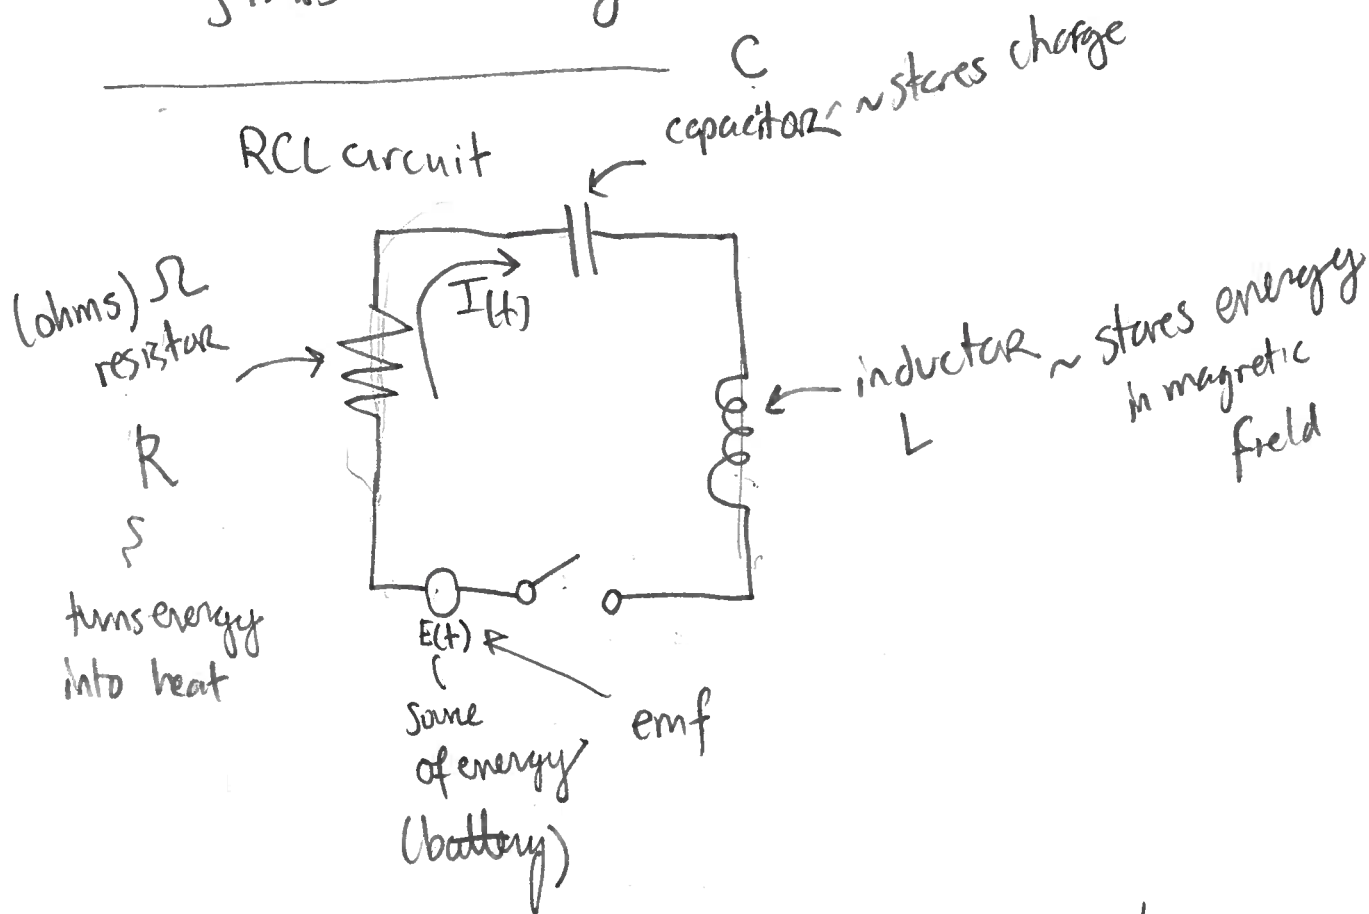 C
capacitor ~ stores charge
RCL circuit
I(t)
(ohms) Ω
resistor
R
turns energy
into heat
inductor ~ stores energy
in magnetic
field
L
E(t)
emf
of energy
(battery)